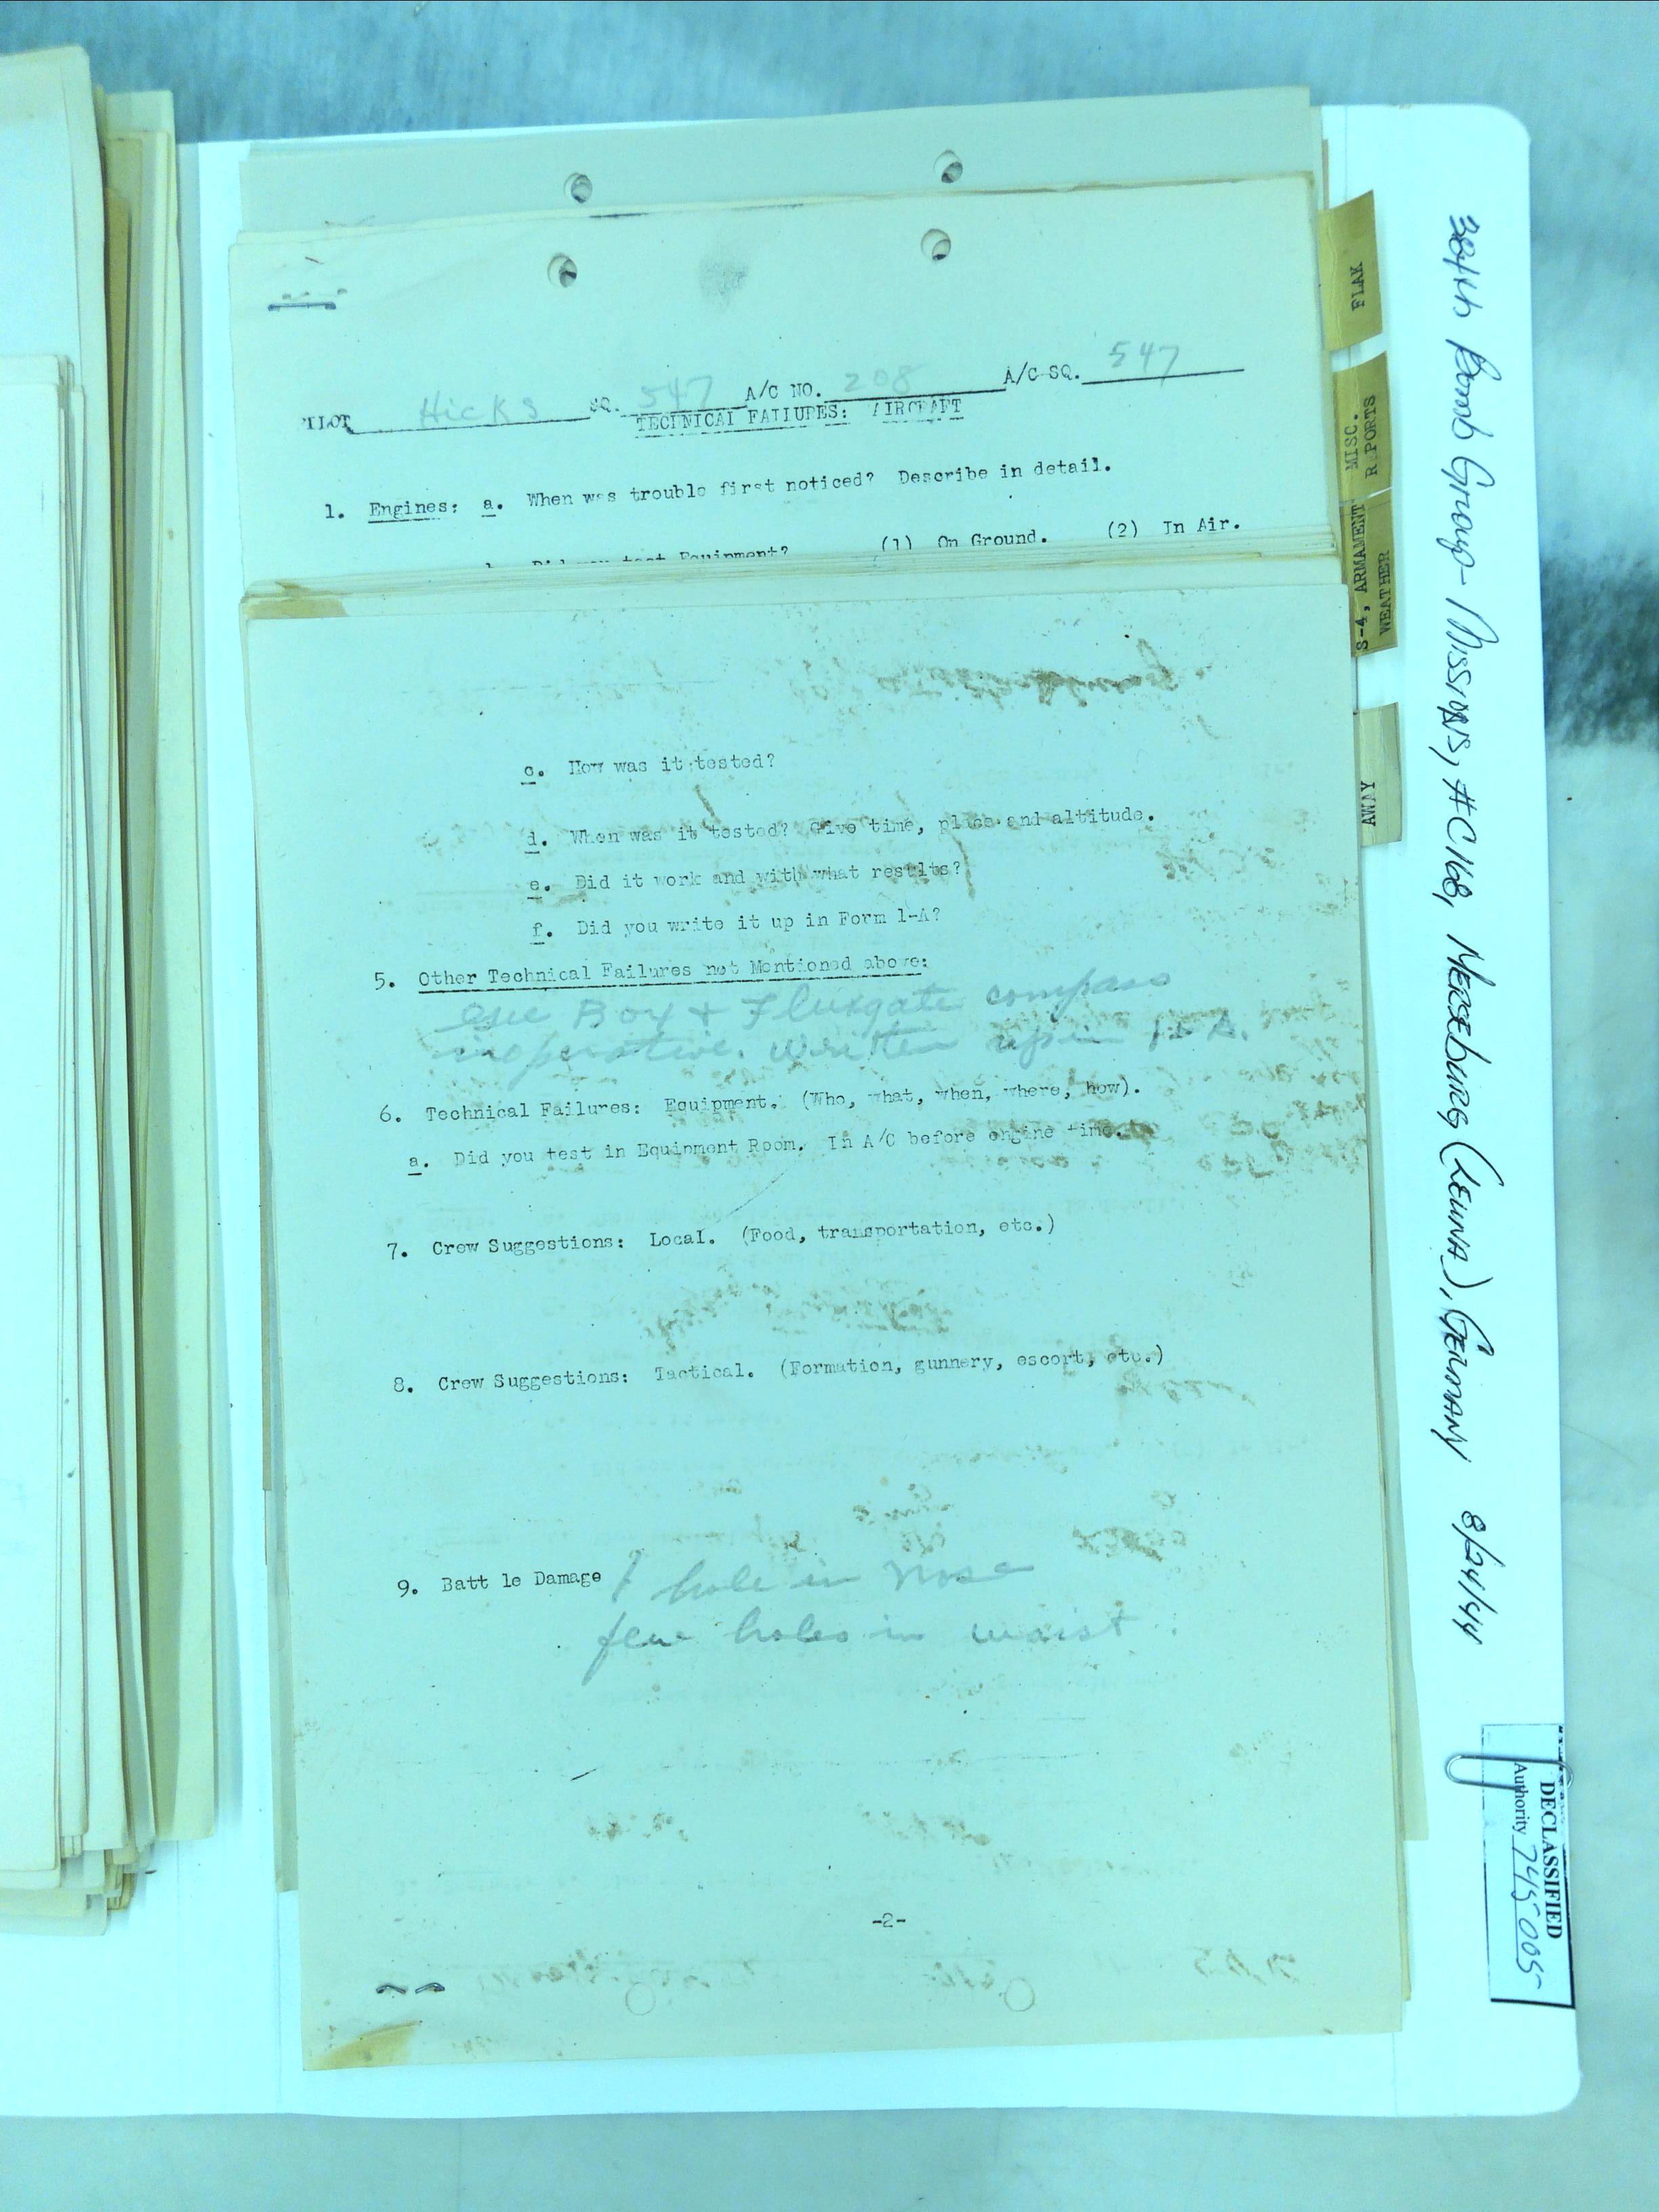 PILOT Hicks SQ. 547 A/C NO. 208 A/C SQ. 547
TECHNICAL FAILURES: AIRCRAFT
1. Engines: a. When was trouble first noticed? Describe in detail.
b. Did you test Equipment? (1) On Ground. (2) In Air.
c. How was it tested?
d. When was it tested? Give time, place and altitude.
e. Did it work and with what results?
f. Did you write it up in Form 1-A?
5. Other Technical Failures not Mentioned above:
Box + Fluxgate compass
inoperative. Written up in
6. Technical Failures: Equipment. (Who, what, when, where, how).
a. Did you test in Equipment Room. In A/C before engine time.
7. Crew Suggestions: Local. (Food, transportation, etc.)
8. Crew Suggestions: Tactical. (Formation, gunnery, escort, etc.)
9. Batt le Damage 1 hole in nose
few holes in waist.
-2-
FLAK
MISC.
R PORTS
S-4, ARMAMENT
WEATHER
AWAY
384th Bomb Group - Missions, #C168, Merseburg (Leuna), Germany 8/24/44
DECLASSIFIED
Authority 745005